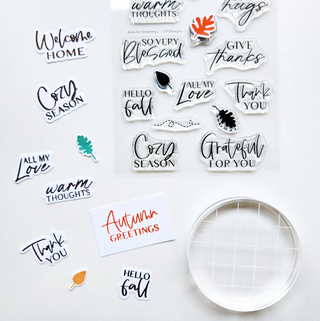 warm
THOUGHTS
hugs
SO VERY
Blessed
GIVE
thanks
HELLO
fall
ALL MY
Love
Thank
YOU
Cozy
SEASON
Grateful
FOR YOU
Welcome
HOME
Cozy
SEASON
ALL MY
Love
warm
THOUGHTS
Thank
YOU
Autumn
GREETINGS
HELLO
fall